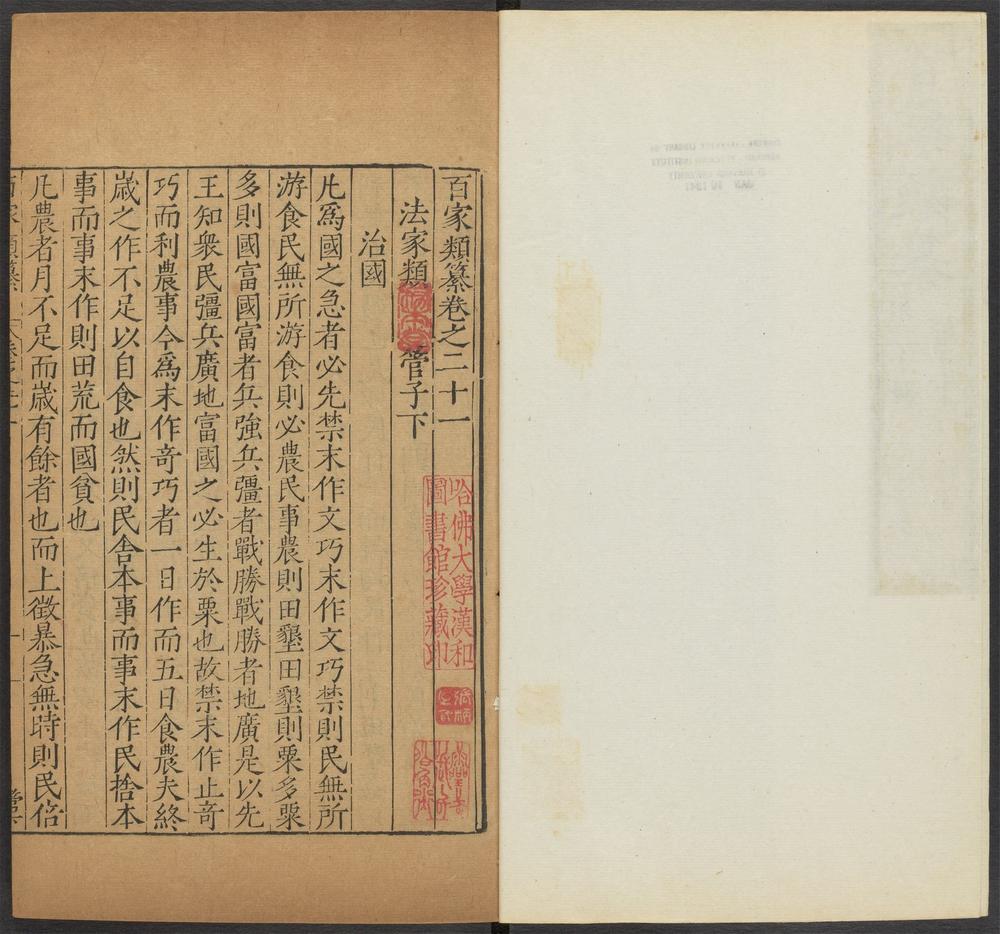 百家類纂卷之二十一
法家類
管子下
治國
凡爲國之急者必先禁末作文巧末作文巧禁則民無所
游食民無所游食則必農民事農則田墾田墾則粟多粟
多則國富國富者兵強兵彊者戰勝戰勝者地廣是以先
王知衆民彊兵廣地富國之必生於粟也故禁末作止奇
巧而利農事今爲末作奇巧者一日作而五日食農夫終
歲之作不足以自食也然則民舍本事而事末作民捨本
事而事末作則田荒而國貧也
凡農者月不足而歲有餘者也而上徵暴急無時則民倍
哈佛大學漢和
圖書館珍藏印